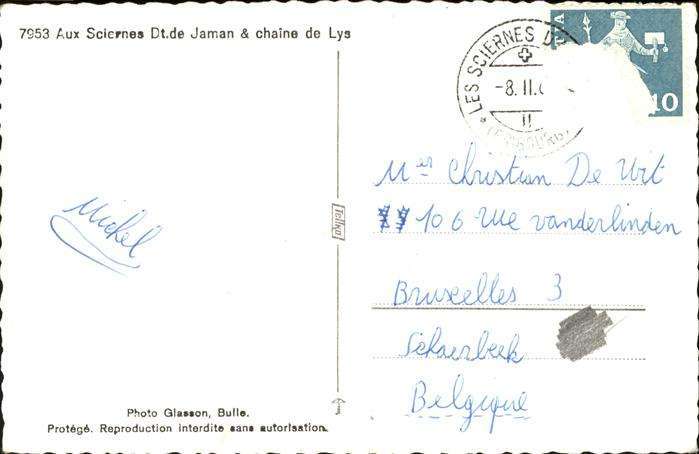 7953 Aux Sciernes Dt.de Jaman & chaîne de Lys
LES SCIERNES D
-8.II.6
II
(FRIBOURG)
10
Michel
Folka
Mer Christian De Wit
106 Rue vanderlinden
Bruxelles 3
Schaerbeek
Belgique
Photo Glasson, Bulle.
Protégé. Reproduction interdite sans autorisation.